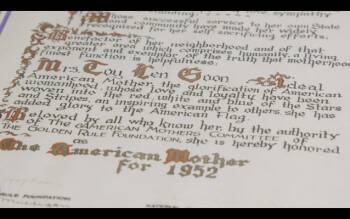 sympathy
Whose successful service to her own State
and community have made her widely
recognized for her self sacrificing efforts.
Benefactor of her neighborhood and of that
greater area which comprises humanity, a living
exponent and exemplar of the truth that motherhood's
most function is helpfulness.
Mrs. Toy Len Goon Ideal
American Mother, the glorification of American
womanhood, whose love and loyalty have been
woven into the red, white and blue of the Stars
and Stripes, an inspiring example to others, she has
added glory to the American Flag.
Beloved by all who know her, by the authority
of THE AMERICAN MOTHERS COMMITTEE of
THE GOLDEN RULE FOUNDATION, she is hereby honored
as
The American Mother
for 1952
RULE FOUNDATION